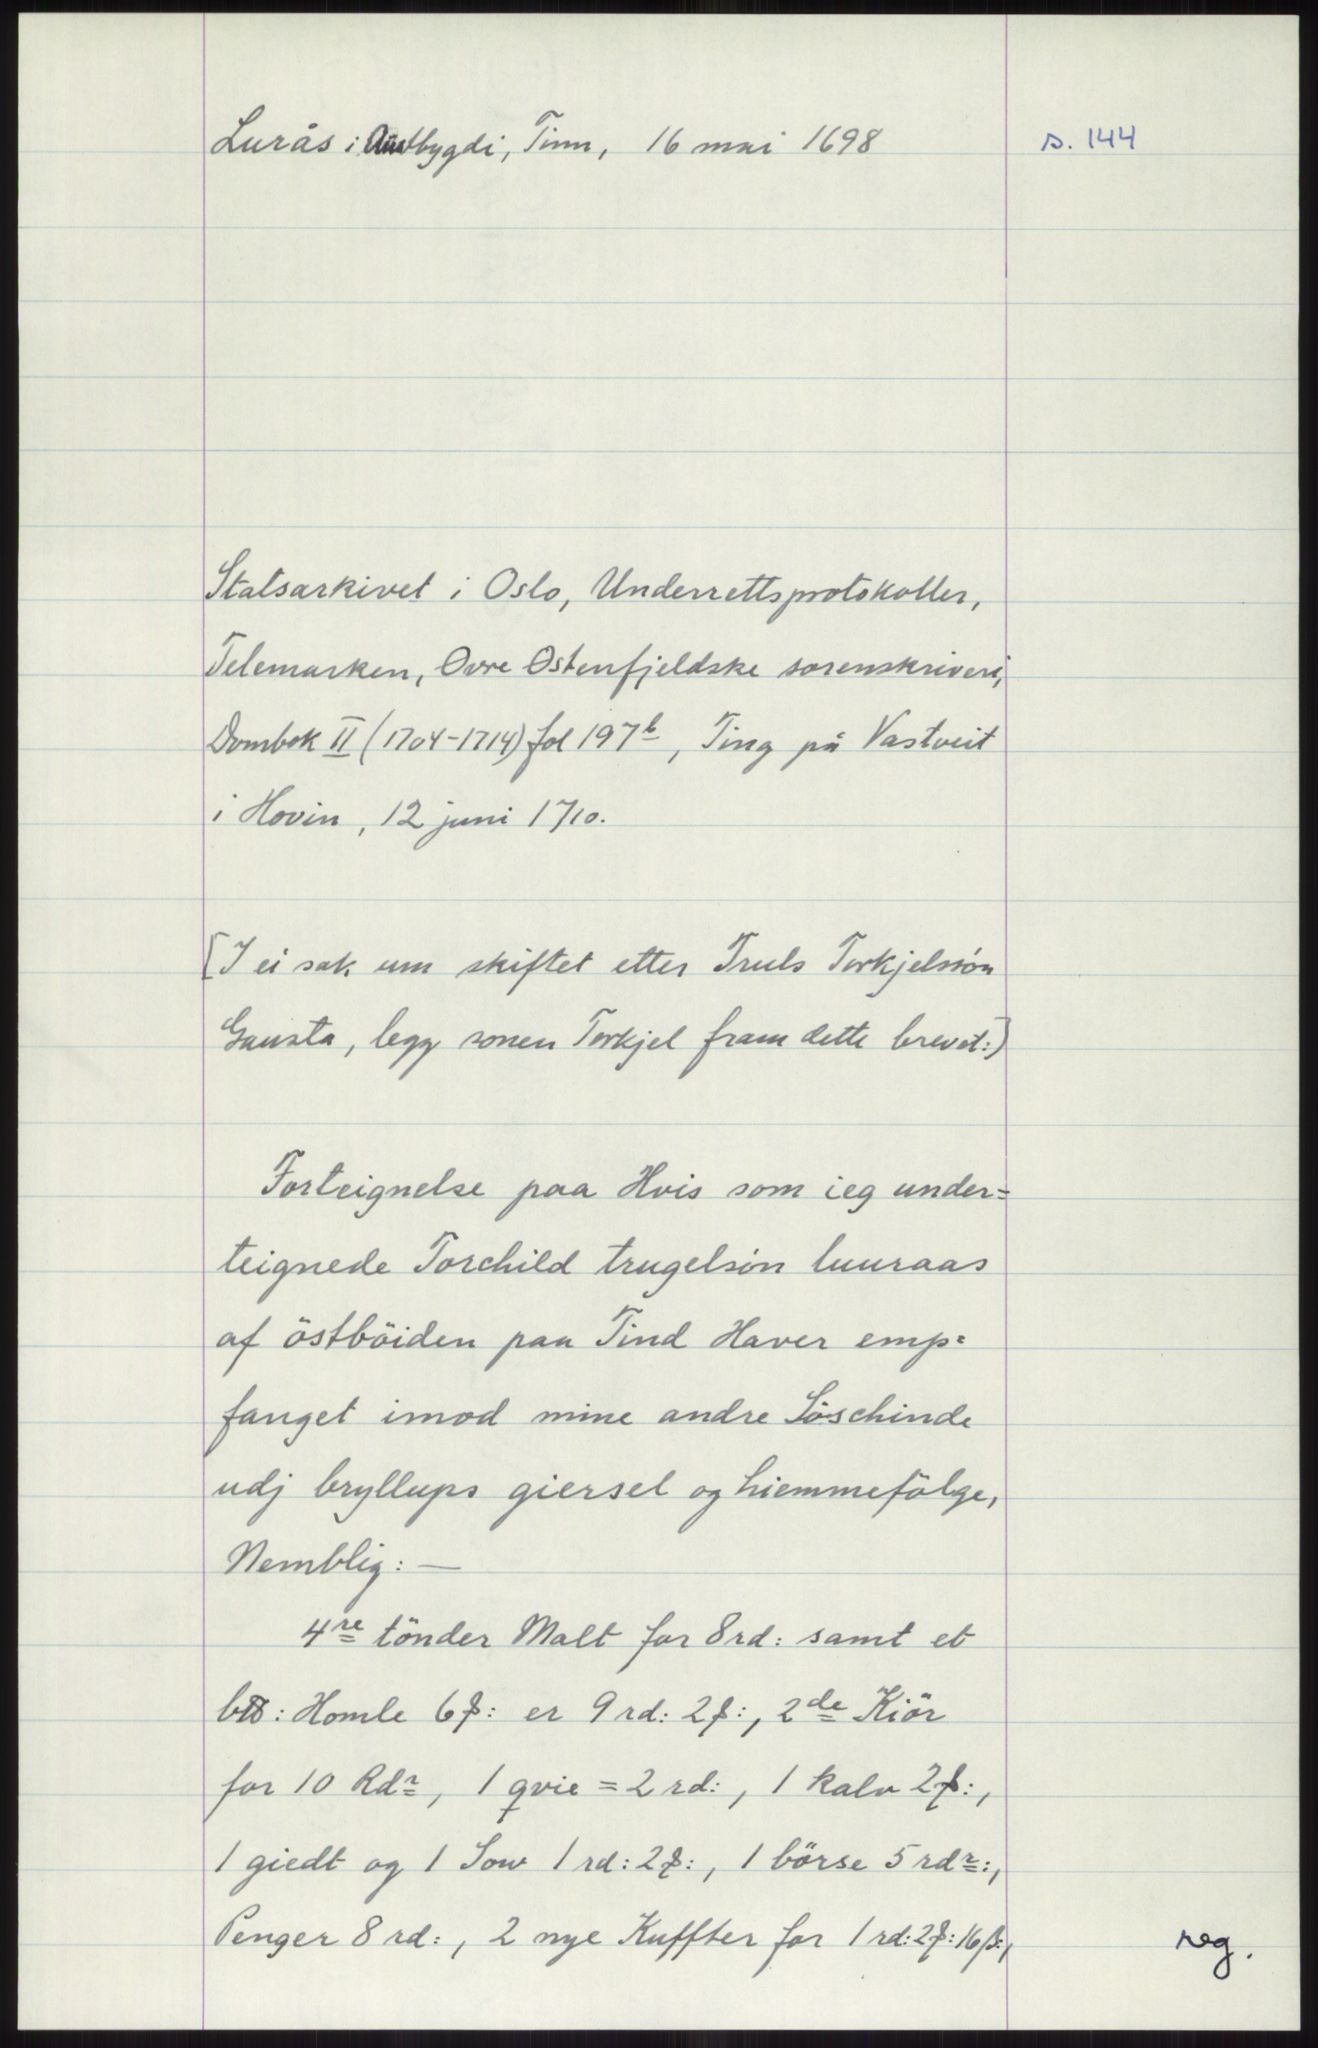 Lurås i Austbygdi, Tinn, 16 mai 1698
s. 144
Statsarkivet i Oslo, Underrettsprotokoller,
Telemarken, Øvre Østenfjeldske sorenskriveri,
Dombok II (1704-1714) fol 197b, Ting på Vastveit
i Hovin, 12 juni 1710.
[I ei sak um skiftet etter Truls Torkjelssön
Gausta, legg sonen Torkjel fram dette brevet:]
Forteignelse paa Hvis som ieg under=
teignede Torchild trugelsön luuraas
af östböiden paa Tind Haver emp=
fanget imod mine andre Söschinde
udj bryllups giersel og hiemmefölge,
Nemblig: —
4re tönder Malt for 8 rd: samt et
Homle 6 er 9 rd: 2 , 2de Kiör
for 10 Rdr, 1 qvie = 2 rd:, 1 kalv 2
1 giedt og 1 Sow 1 rd: 2 , 1 börse 5 rdr:,
Penger 8 rd:, 2 nye Kuffter for 1 rd: 2 16 β:,
reg.